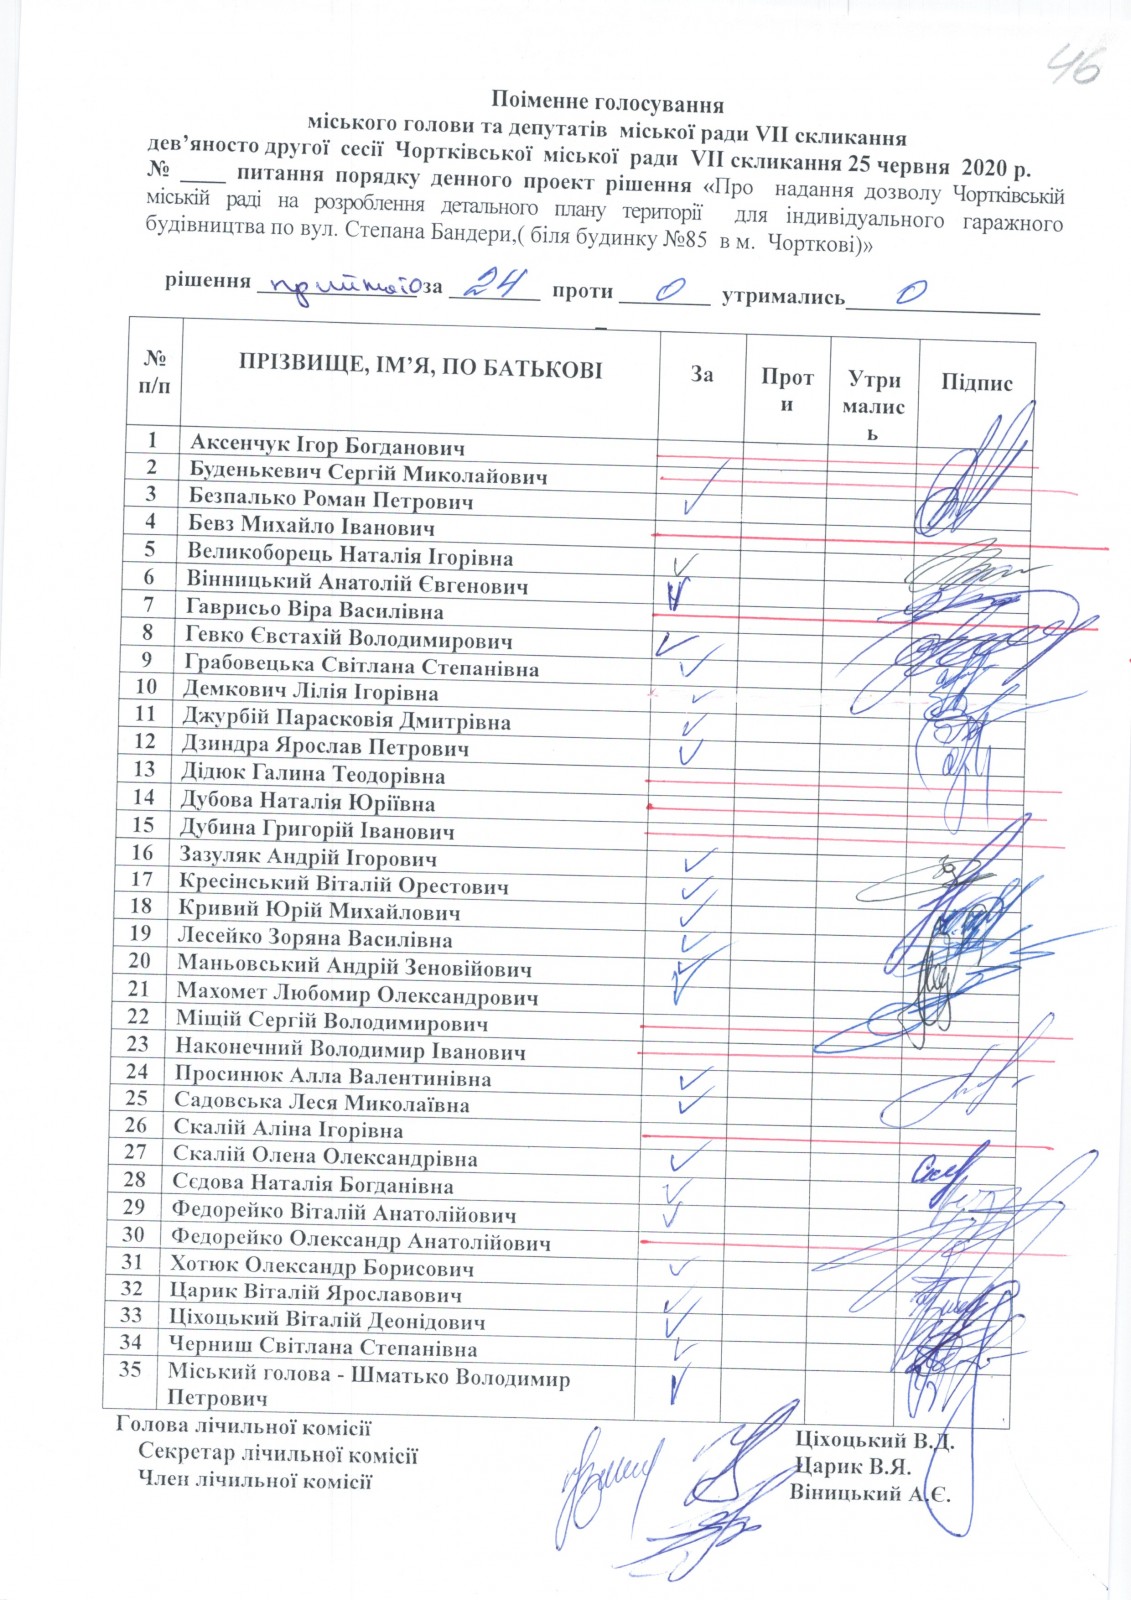 46
Поіменне голосування
міського голови та депутатів міської ради VII скликання
дев’яносто другої сесії Чортківської міської ради VII скликання 25 червня 2020 р.
№ ____ питання порядку денного проект рішення «Про надання дозволу Чортківській
міській раді на розроблення детального плану території для індивідуального гаражного
будівництва по вул. Степана Бандери,( біля будинку №85 в м. Чорткові)»
рішення прийнято за 24 проти 0 утримались 0
№ п/п ПРІЗВИЩЕ, ІМ’Я, ПО БАТЬКОВІ За Проти Утрималиь Підпис
1 Аксенчук Ігор Богданович
2 Буденькевич Сергій Миколайович
3 Безпалько Роман Петрович
4 Бевз Михайло Іванович
5 Великоборець Наталія Ігорівна
6 Вінницький Анатолій Євгенович
7 Гаврисьо Віра Василівна
8 Гевко Євстахій Володимирович
9 Грабовецька Світлана Степанівна
10 Демкович Лілія Ігорівна
11 Джурбій Парасковія Дмитрівна
12 Дзиндра Ярослав Петрович
13 Дідюк Галина Теодорівна
14 Дубова Наталія Юріївна
15 Дубина Григорій Іванович
16 Зазуляк Андрій Ігорович
17 Кресінський Віталій Орестович
18 Кривий Юрій Михайлович
19 Лесейко Зоряна Василівна
20 Маньовський Андрій Зеновійович
21 Махомет Любомир Олександрович
22 Міщій Сергій Володимирович
23 Наконечний Володимир Іванович
24 Просинюк Алла Валентинівна
25 Садовська Леся Миколаївна
26 Скалій Аліна Ігорівна
27 Скалій Олена Олександрівна
28 Сєдова Наталія Богданівна
29 Федорейко Віталій Анатолійович
30 Федорейко Олександр Анатолійович
31 Хотюк Олександр Борисович
32 Царик Віталій Ярославович
33 Ціхоцький Віталій Деонідович
34 Черниш Світлана Степанівна
35 Міський голова - Шматько Володимир
Петрович
Голова лічильної комісії Ціхоцький В.Д.
Секретар лічильної комісії Царик В.Я.
Член лічильної комісії Віницький А.Є.